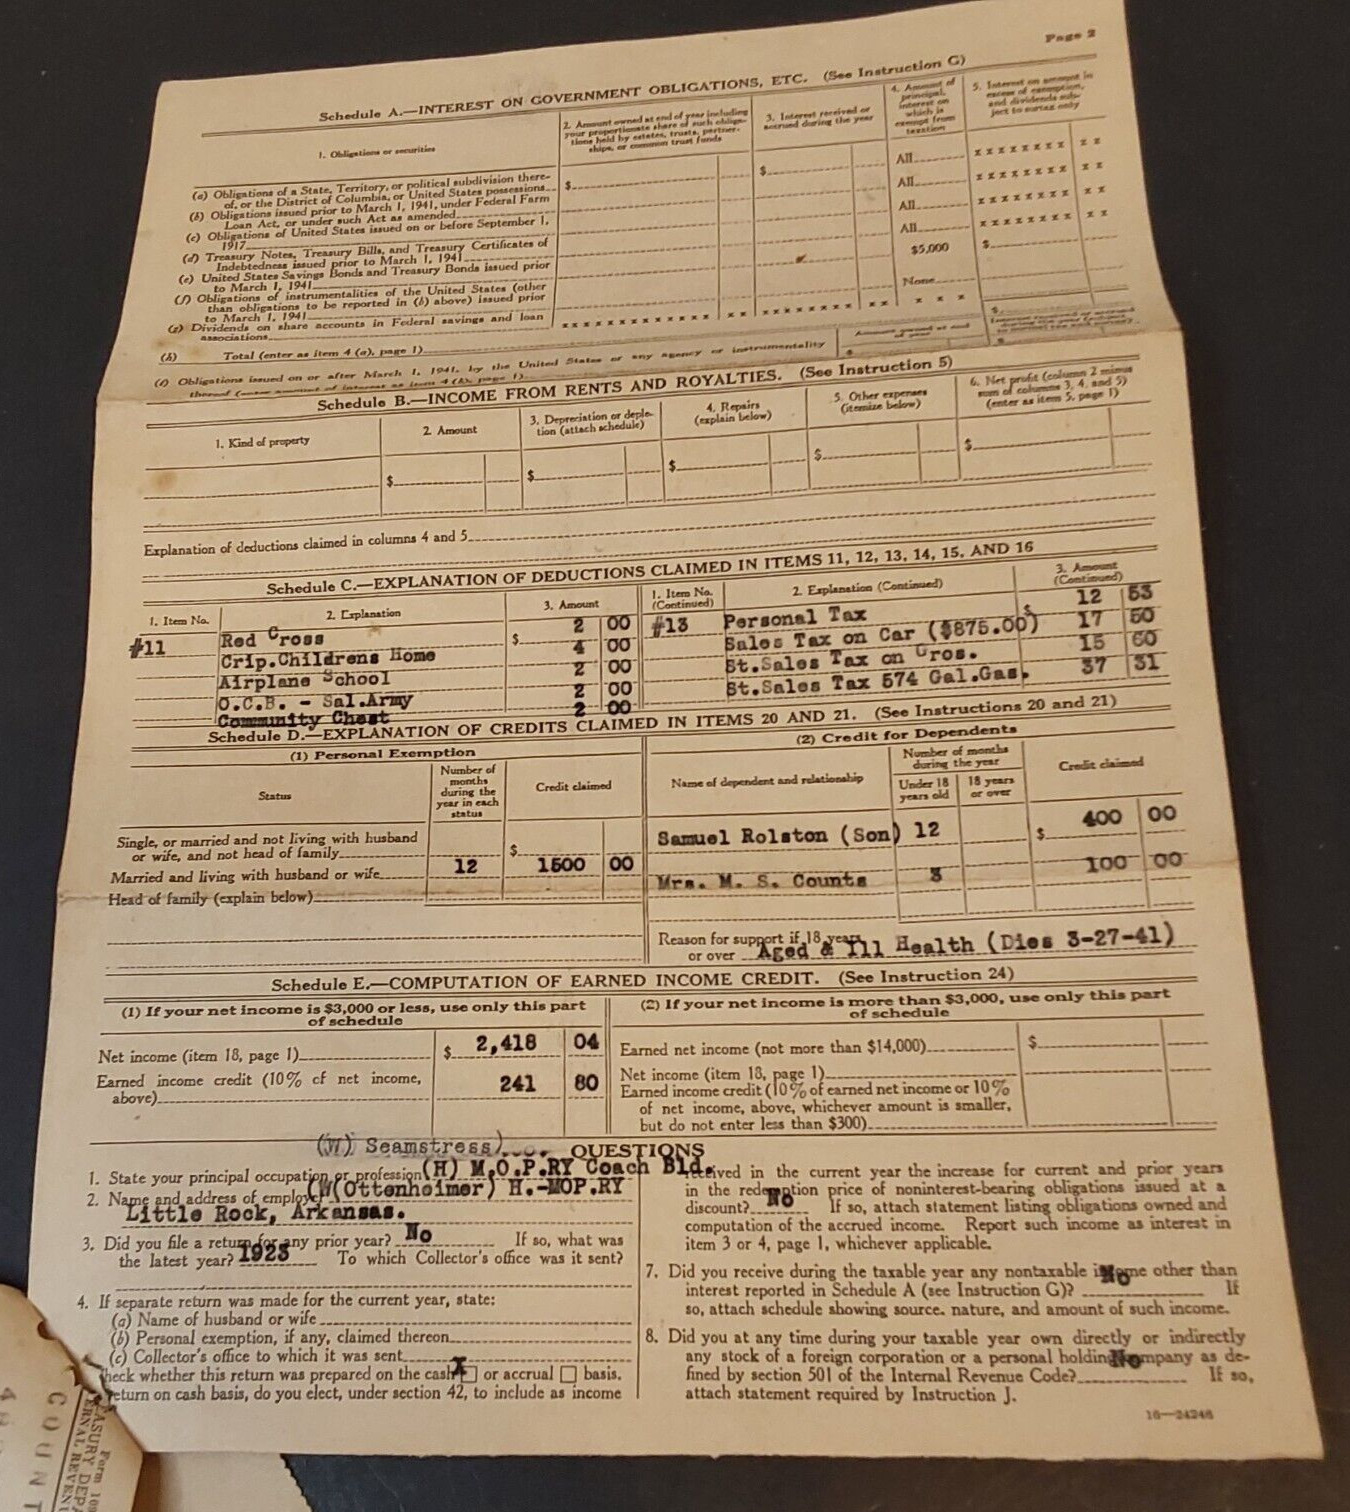 Page 2
Schedule A.—INTEREST ON GOVERNMENT OBLIGATIONS, ETC. (See Instruction G)
1. Obligations or securities
2. Amount owned at end of year including your proportionate share of such obligations held by estates, trusts, partnerships, or common trust funds
3. Interest received or accrued during the year
4. Amount of principal, interest on which is exempt from taxation
5. Interest on amount in excess of exemption, and dividends subject to surtax only
(a) Obligations of a State, Territory, or political subdivision there-
of, or the District of Columbia, or United States possessions
$ $ All x x x x x x x x x x
(b) Obligations issued prior to March 1, 1941, under Federal Farm
Loan Act, or under such Act as amended
All x x x x x x x x x x
(c) Obligations of United States issued on or before September 1,
1917
All x x x x x x x x x x
(d) Treasury Notes, Treasury Bills, and Treasury Certificates of
Indebtedness issued prior to March 1, 1941
All x x x x x x x x x x
(e) United States Savings Bonds and Treasury Bonds issued prior
to March 1, 1941
$5,000 $
(f) Obligations of instrumentalities of the United States (other
than obligations to be reported in (b) above) issued prior
to March 1, 1941
None
(g) Dividends on share accounts in Federal savings and loan
associations
x x x x x x x x x x x x x x x x x x x x x x x x x x
(h) Total (enter as item 4 (a), page 1)
$
(i) Obligations issued on or after March 1, 1941, by the United States or any agency or instrumentality
thereof (enter amount of interest as item 4 (b), page 1)
Amount owned at end of year
$
Schedule B.—INCOME FROM RENTS AND ROYALTIES. (See Instruction 5)
1. Kind of property
2. Amount
3. Depreciation or deple-
tion (attach schedule)
4. Repairs
(explain below)
5. Other expenses
(itemize below)
6. Net profit (column 2 minus
sum of columns 3, 4, and 5)
(enter as item 5, page 1)
$ $ $ $ $
Explanation of deductions claimed in columns 4 and 5
Schedule C.—EXPLANATION OF DEDUCTIONS CLAIMED IN ITEMS 11, 12, 13, 14, 15, AND 16
1. Item No. 2. Explanation 3. Amount 1. Item No. (Continued) 2. Explanation (Continued) 3. Amount (Continued)
#11 Red Cross $ 2 00 #13 Personal Tax $ 12 53
Crip.Childrens Home 4 00 Sales Tax on Car ($875.00) 17 50
Airplane School 2 00 St.Sales Tax on Gros. 15 60
O.C.B. - Sal.Army 2 00 St.Sales Tax 574 Gal.Gas. 37 31
Community Chest 2 00
Schedule D.—EXPLANATION OF CREDITS CLAIMED IN ITEMS 20 AND 21. (See Instructions 20 and 21)
(1) Personal Exemption
Status
Number of months during the year in each status
Credit claimed
Single, or married and not living with husband
or wife, and not head of family $
Married and living with husband or wife 12 1500 00
Head of family (explain below)
(2) Credit for Dependents
Name of dependent and relationship
Number of months
during the year
Under 18
years old
18 years
or over
Credit claimed
Samuel Rolston (Son) 12 $ 400 00
Mrs. M. S. Counts 3 100 00
Reason for support if 18 years
or over Aged & Ill Health (Dies 3-27-41)
Schedule E.—COMPUTATION OF EARNED INCOME CREDIT. (See Instruction 24)
(1) If your net income is $3,000 or less, use only this part
of schedule
Net income (item 18, page 1) $ 2,418 04
Earned income credit (10% of net income,
above) 241 80
(2) If your net income is more than $3,000, use only this part
of schedule
Earned net income (not more than $14,000) $
Net income (item 18, page 1)
Earned income credit (10% of earned net income or 10%
of net income, above, whichever amount is smaller,
but do not enter less than $300)
QUESTIONS
(W) Seamstress)
1. State your principal occupation or profession (H) M.O.P.RY Coach Bld.
2. Name and address of employer (W(Ottenheimer) H.-MOP.RY
Little Rock, Arkansas.
3. Did you file a return for any prior year? No If so, what was
the latest year? 1923 To which Collector's office was it sent?
4. If separate return was made for the current year, state:
(a) Name of husband or wife
(b) Personal exemption, if any, claimed thereon
(c) Collector's office to which it was sent
heck whether this return was prepared on the cash X or accrual basis.
eturn on cash basis, do you elect, under section 42, to include as income
received in the current year the increase for current and prior years
in the redemption price of noninterest-bearing obligations issued at a
discount? No If so, attach statement listing obligations owned and
computation of the accrued income. Report such income as interest in
item 3 or 4, page 1, whichever applicable.
7. Did you receive during the taxable year any nontaxable income other than
interest reported in Schedule A (see Instruction G)? No If
so, attach schedule showing source, nature, and amount of such income.
8. Did you at any time during your taxable year own directly or indirectly
any stock of a foreign corporation or a personal holding company as de-
fined by section 501 of the Internal Revenue Code? No If so,
attach statement required by Instruction J.
16—24246
COUNT
Form 109